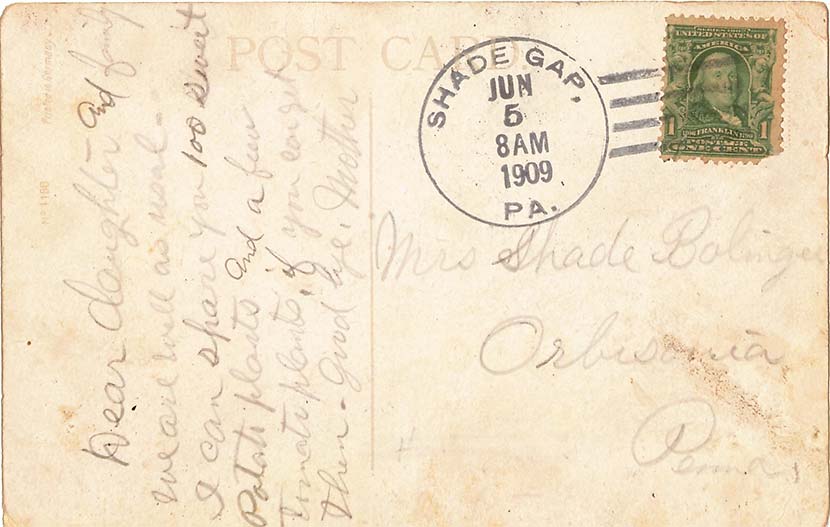 POST CARD
Printed in Germany
Nº 1196
Dear daughter and family
we are well as usual -
I can spare you 100 sweet
Potato plants and a few
Tomato plants if you can get
them - Good bye, Mother
SHADE GAP,
JUN
5
8AM
1909
PA.
SERIES 1902
UNITED STATES OF
AMERICA
1 FRANKLIN 1
POSTAGE
ONE CENT
Mrs Shade Bolinger
Orbisonia
Penna,